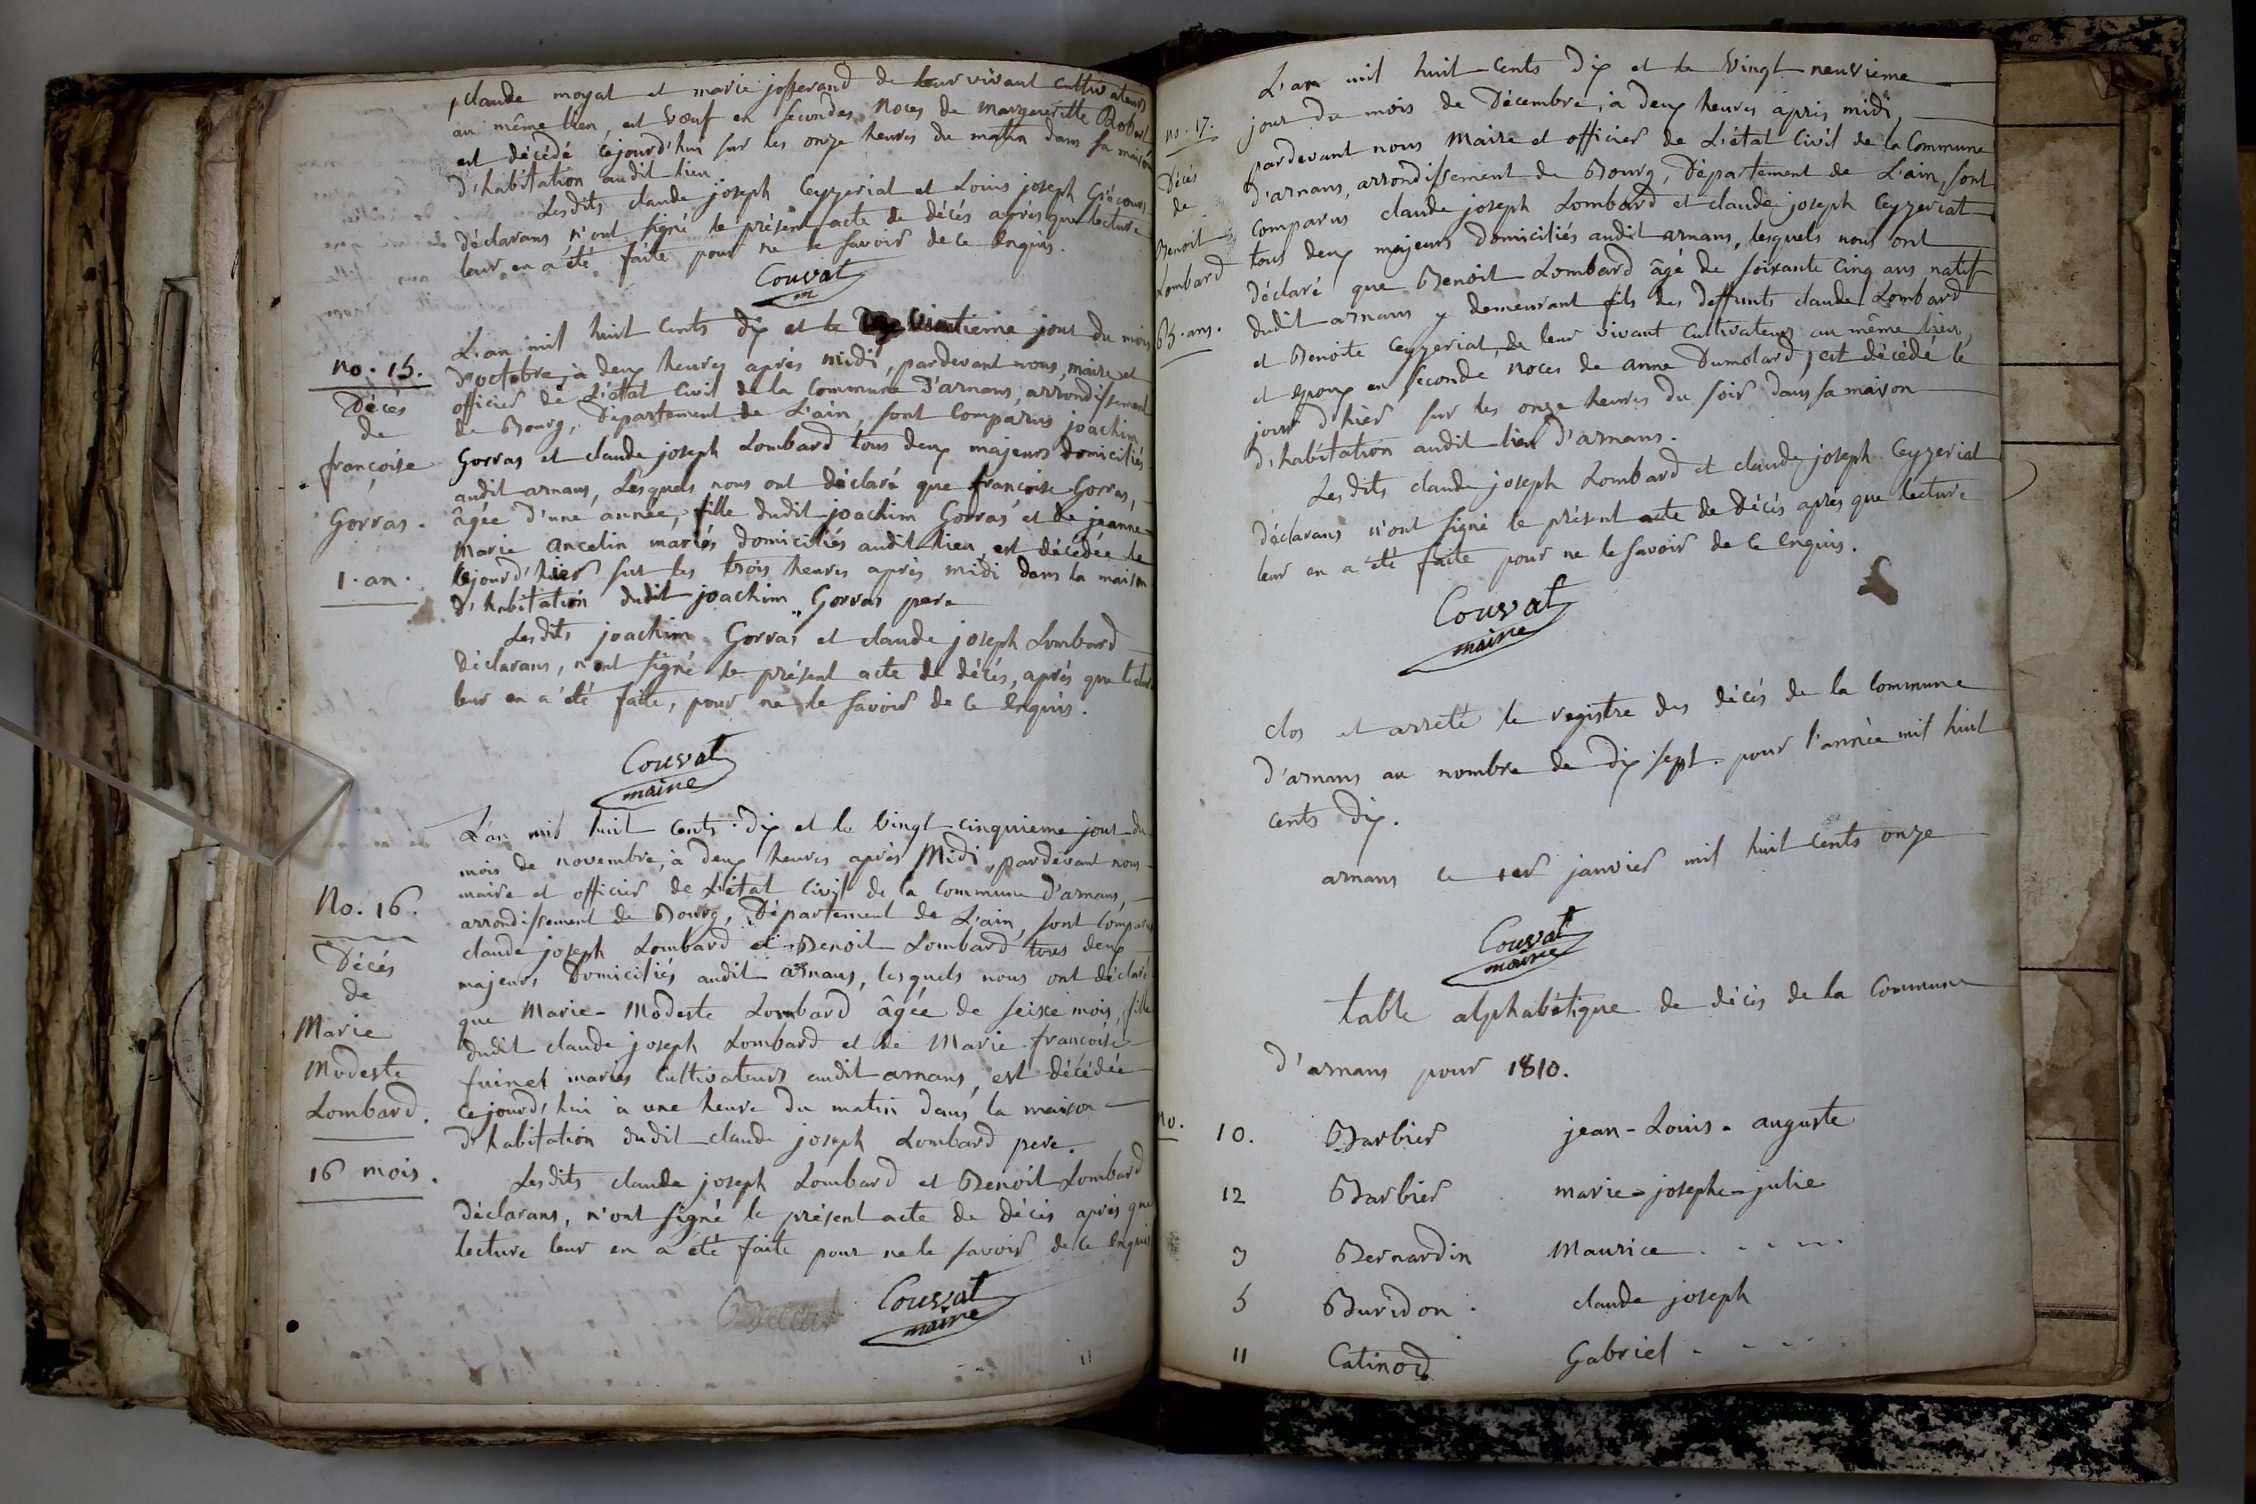 claude moyat et marie josserand de leur vivant cultivateurs
au même lieu, est vœuf en secondes noces de margueritte Robert
est décédé cejourd'hui sur les onze heures du matin dans sa maison
d'habitation audit lieu.
Lesdits claude joseph Ceyzeriat et Louis joseph
déclarans n'ont signé le présent acte de décés après que lecture
leur en a été faite pour ne le savoir de ce enquis.
Couvat
no. 15.
Décés
de
françoise
Gorras.
1. an.
L'an mil huit cents dix et le jour du mois
d'octobre, à deux heures après midi, pardevant nous, maire et
officier de L'état Civil de la Commune d'arnans, arrondissement
de Bourg, Département de L'ain, sont Comparus joachim
Gorras et claude joseph Lombard tous deux majeurs domiciliés
audit arnans, Lesquels nous ont déclaré que françoise Gorras,
âgée d'une année, fille dudit joachim Gorras et de jeanne
Marie ancelin mariés domiciliés audit lieu, est décédée le
jourd'hier sur les trois heures après midi dans la maison
d'habitation dudit joachim Gorras pere
Lesdits joachim Gorras et claude joseph Lombard
déclarans, n'ont signé le présent acte de décés, après que lecture
leur en a été faite, pour ne le savoir de ce enquis.
Couvat
maire
No. 16.
Décés
de
Marie
Modeste
Lombard.
16 mois.
L'an mil huit cents dix et le vingt cinquieme jour du
mois de novembre, à deux heures après Midi, pardevant nous
maire et officier de L'état Civil de la Commune d'arnans,
arrondissement de Bourg, Département de L'ain, sont Comparus
claude joseph Lombard et Benoit Lombard tous deux
majeurs domiciliés audit arnans, lesquels nous ont déclaré
que Marie-Modeste Lombard âgée de seise mois, fille
dudit claude joseph Lombard et de Marie françoise
fuinet mariés Cultivateurs audit arnans, est décédée
cejourd'hui à une heure du matin dans la maison
d'habitation dudit claude joseph Lombard pere.
Lesdits claude joseph Lombard et Benoit Lombard
déclarans, n'ont signé le présent acte de décés après que
lecture leur en a été faite pour ne le savoir de ce enquis
Couvat
maire
11
no. 17.
Décés
de
Benoit
Lombard
65. ans.
L'an mil huit cents dix et le vingt neuvieme
jour du mois de Décembre, à deux heures après midi,
pardevant nous Maire et officier de L'état Civil de la Commune
d'arnans, arrondissement de Bourg, Département de L'ain, sont
comparus claude joseph Lombard et claude joseph Ceyzeriat
tous deux majeurs domiciliés audit arnans, lesquels nous ont
déclaré que Benoit Lombard âgé de soixante cinq ans natif
dudit arnans y demeurant fils des deffunts claude Lombard
et Benoite Ceyzeriat, de leur vivant cultivateurs au même lieu,
et epoux en seconde noces de anne Dumolard, est décédé le
jour d'hier sur les onze heures du soir dans sa maison
d'habitation audit lieu d'arnans.
Lesdits claude joseph Lombard et claude joseph Ceyzeriat
déclarans n'ont signé le présent acte de décés après que lecture
leur en a été faite pour ne le savoir de ce enquis.
Couvat
maire
clos et arreté le registre des décés de la Commune
d'arnans au nombre de dix sept. pour l'année mil huit
cents dix.
arnans ce 1er janvier mil huit cents onze
Couvat
maire
table alphabétique de décés de la Commune
d'arnans pour 1810.
no.
10. Barbier jean-Louis-auguste
12 Barbier marie-josephe-julie
3 Bernardin Maurice
5 Buridon. claude joseph
11 Catinod Gabriel